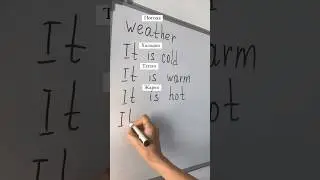 Погода
weather
Холодно
It is cold
Тепло
It is warm
Жарко
It is hot
It